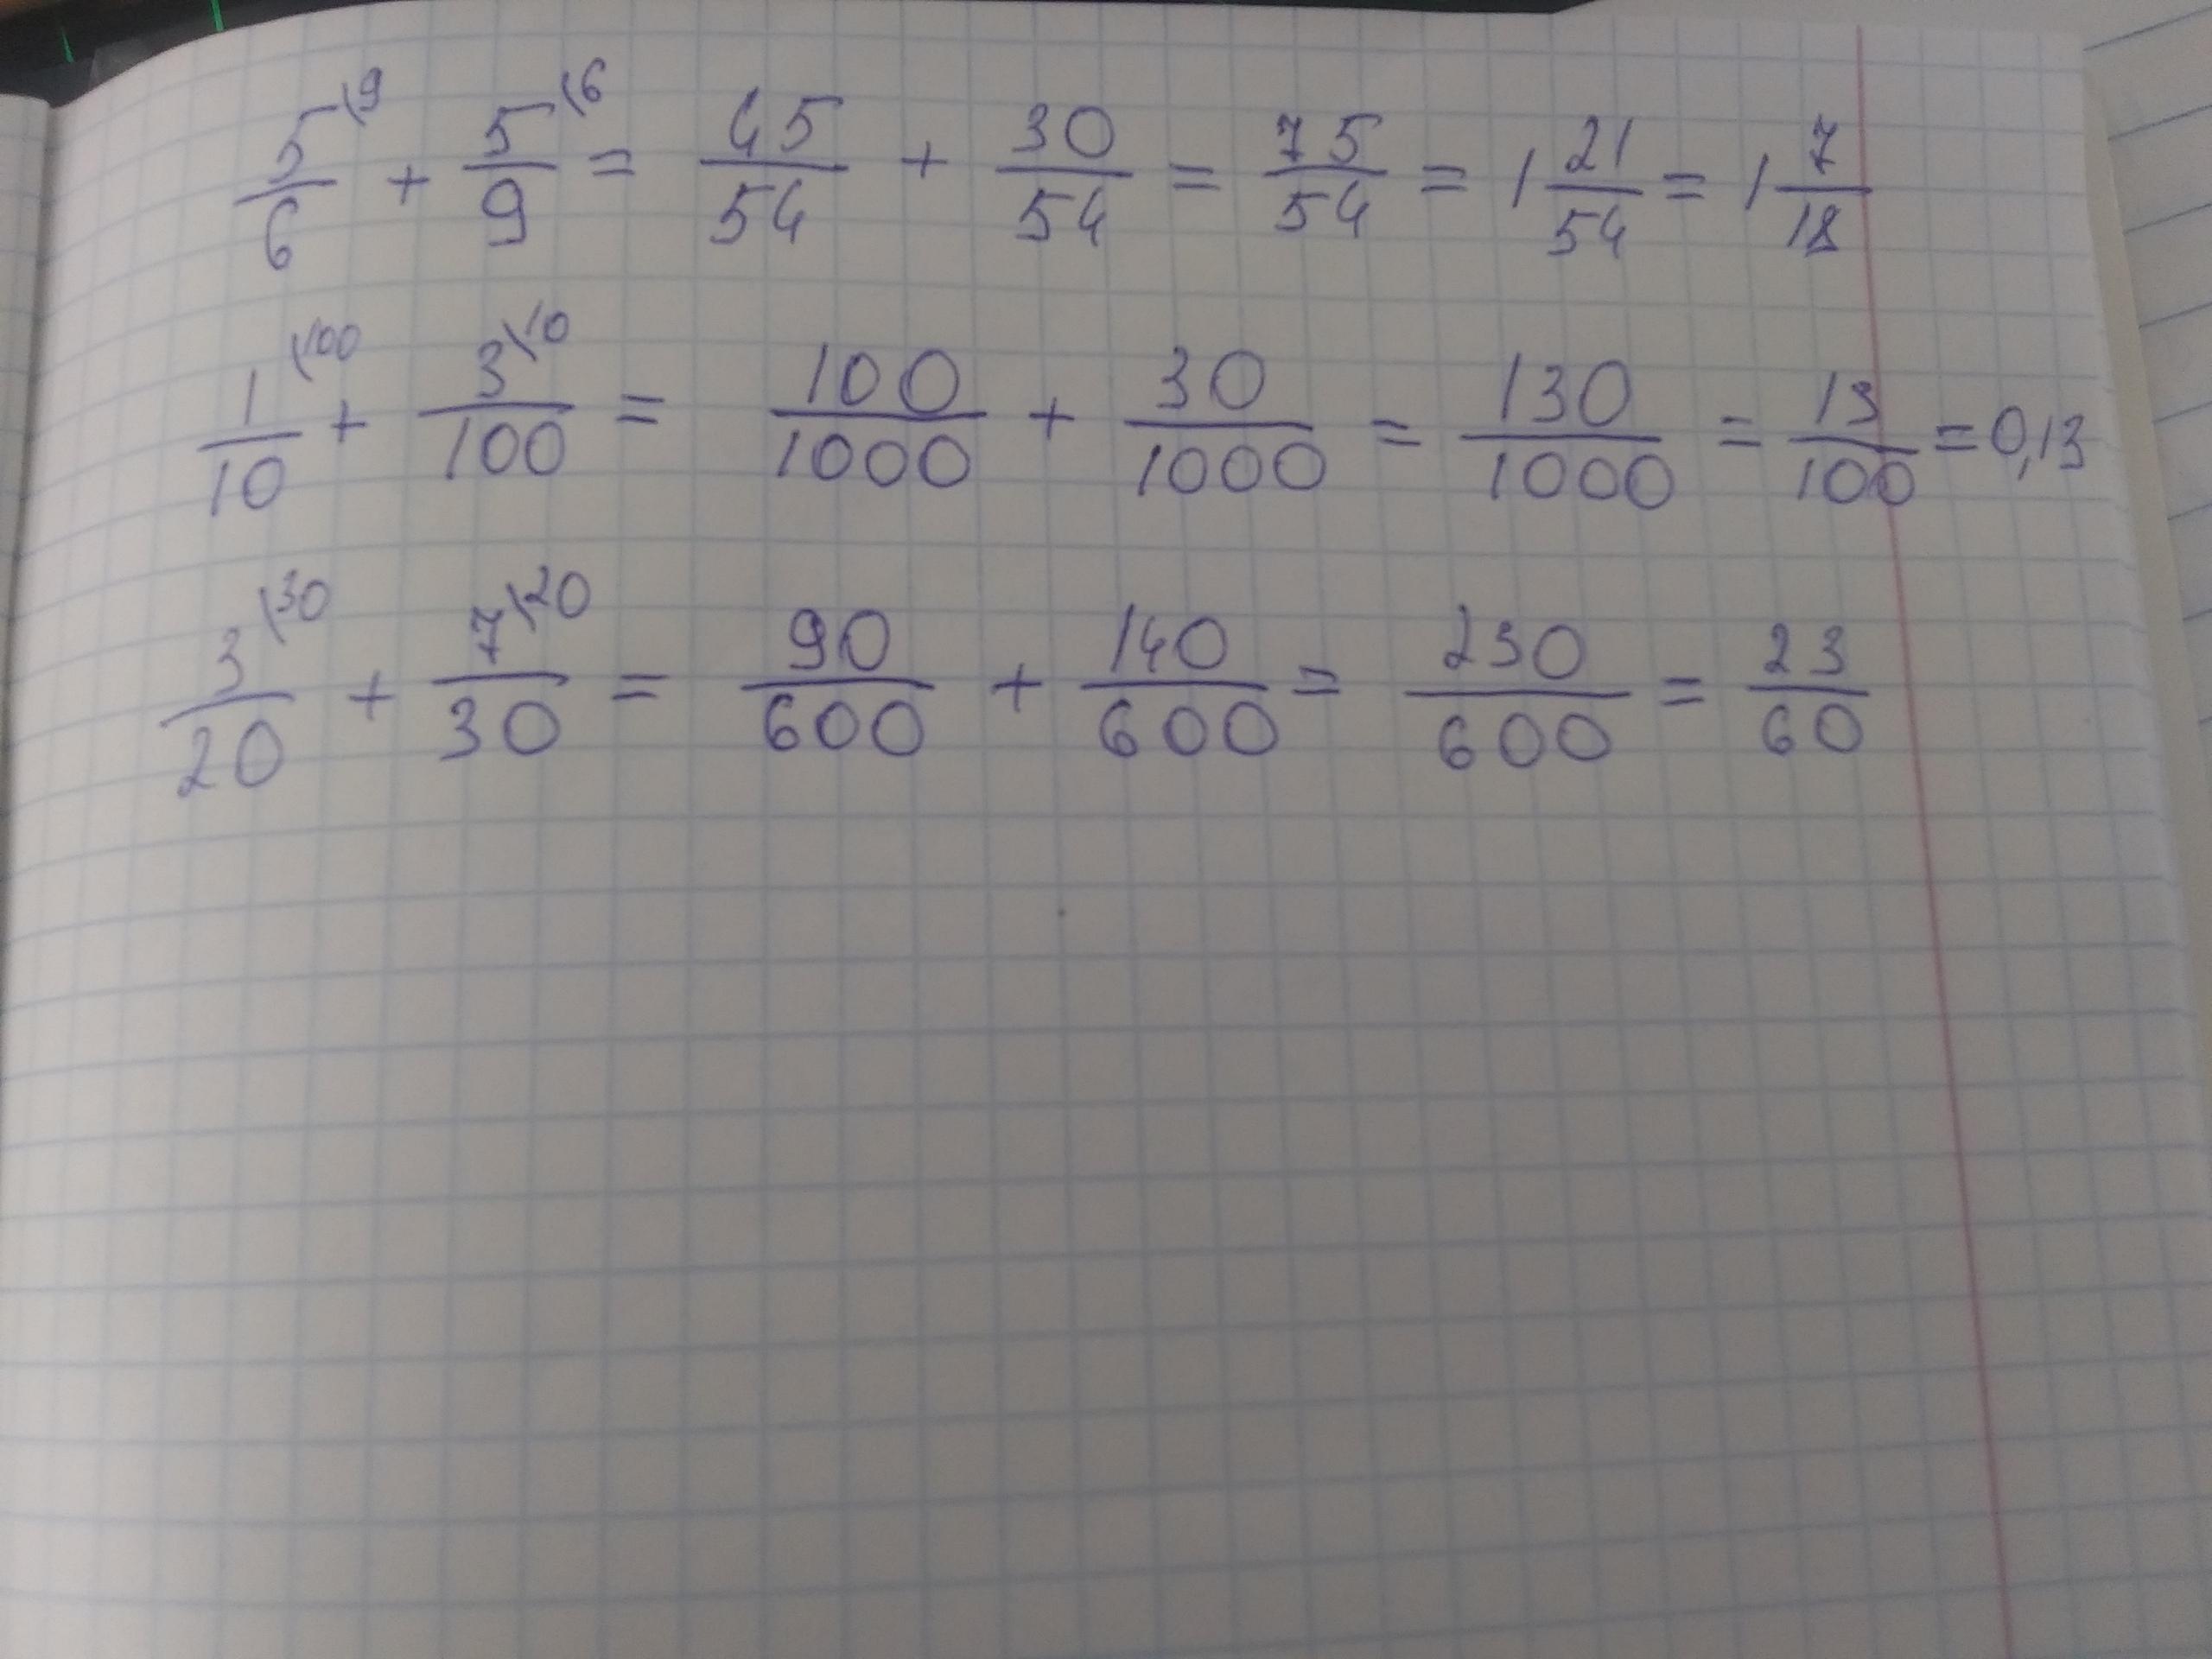 5\9/6 + 5\6/9 = 45/54 + 30/54 = 75/54 = 1 21/54 = 1 7/18
1\100/10 + 3\10/100 = 100/1000 + 30/1000 = 130/1000 = 13/100 = 0,13
3\30/20 + 7\20/30 = 90/600 + 140/600 = 230/600 = 23/60